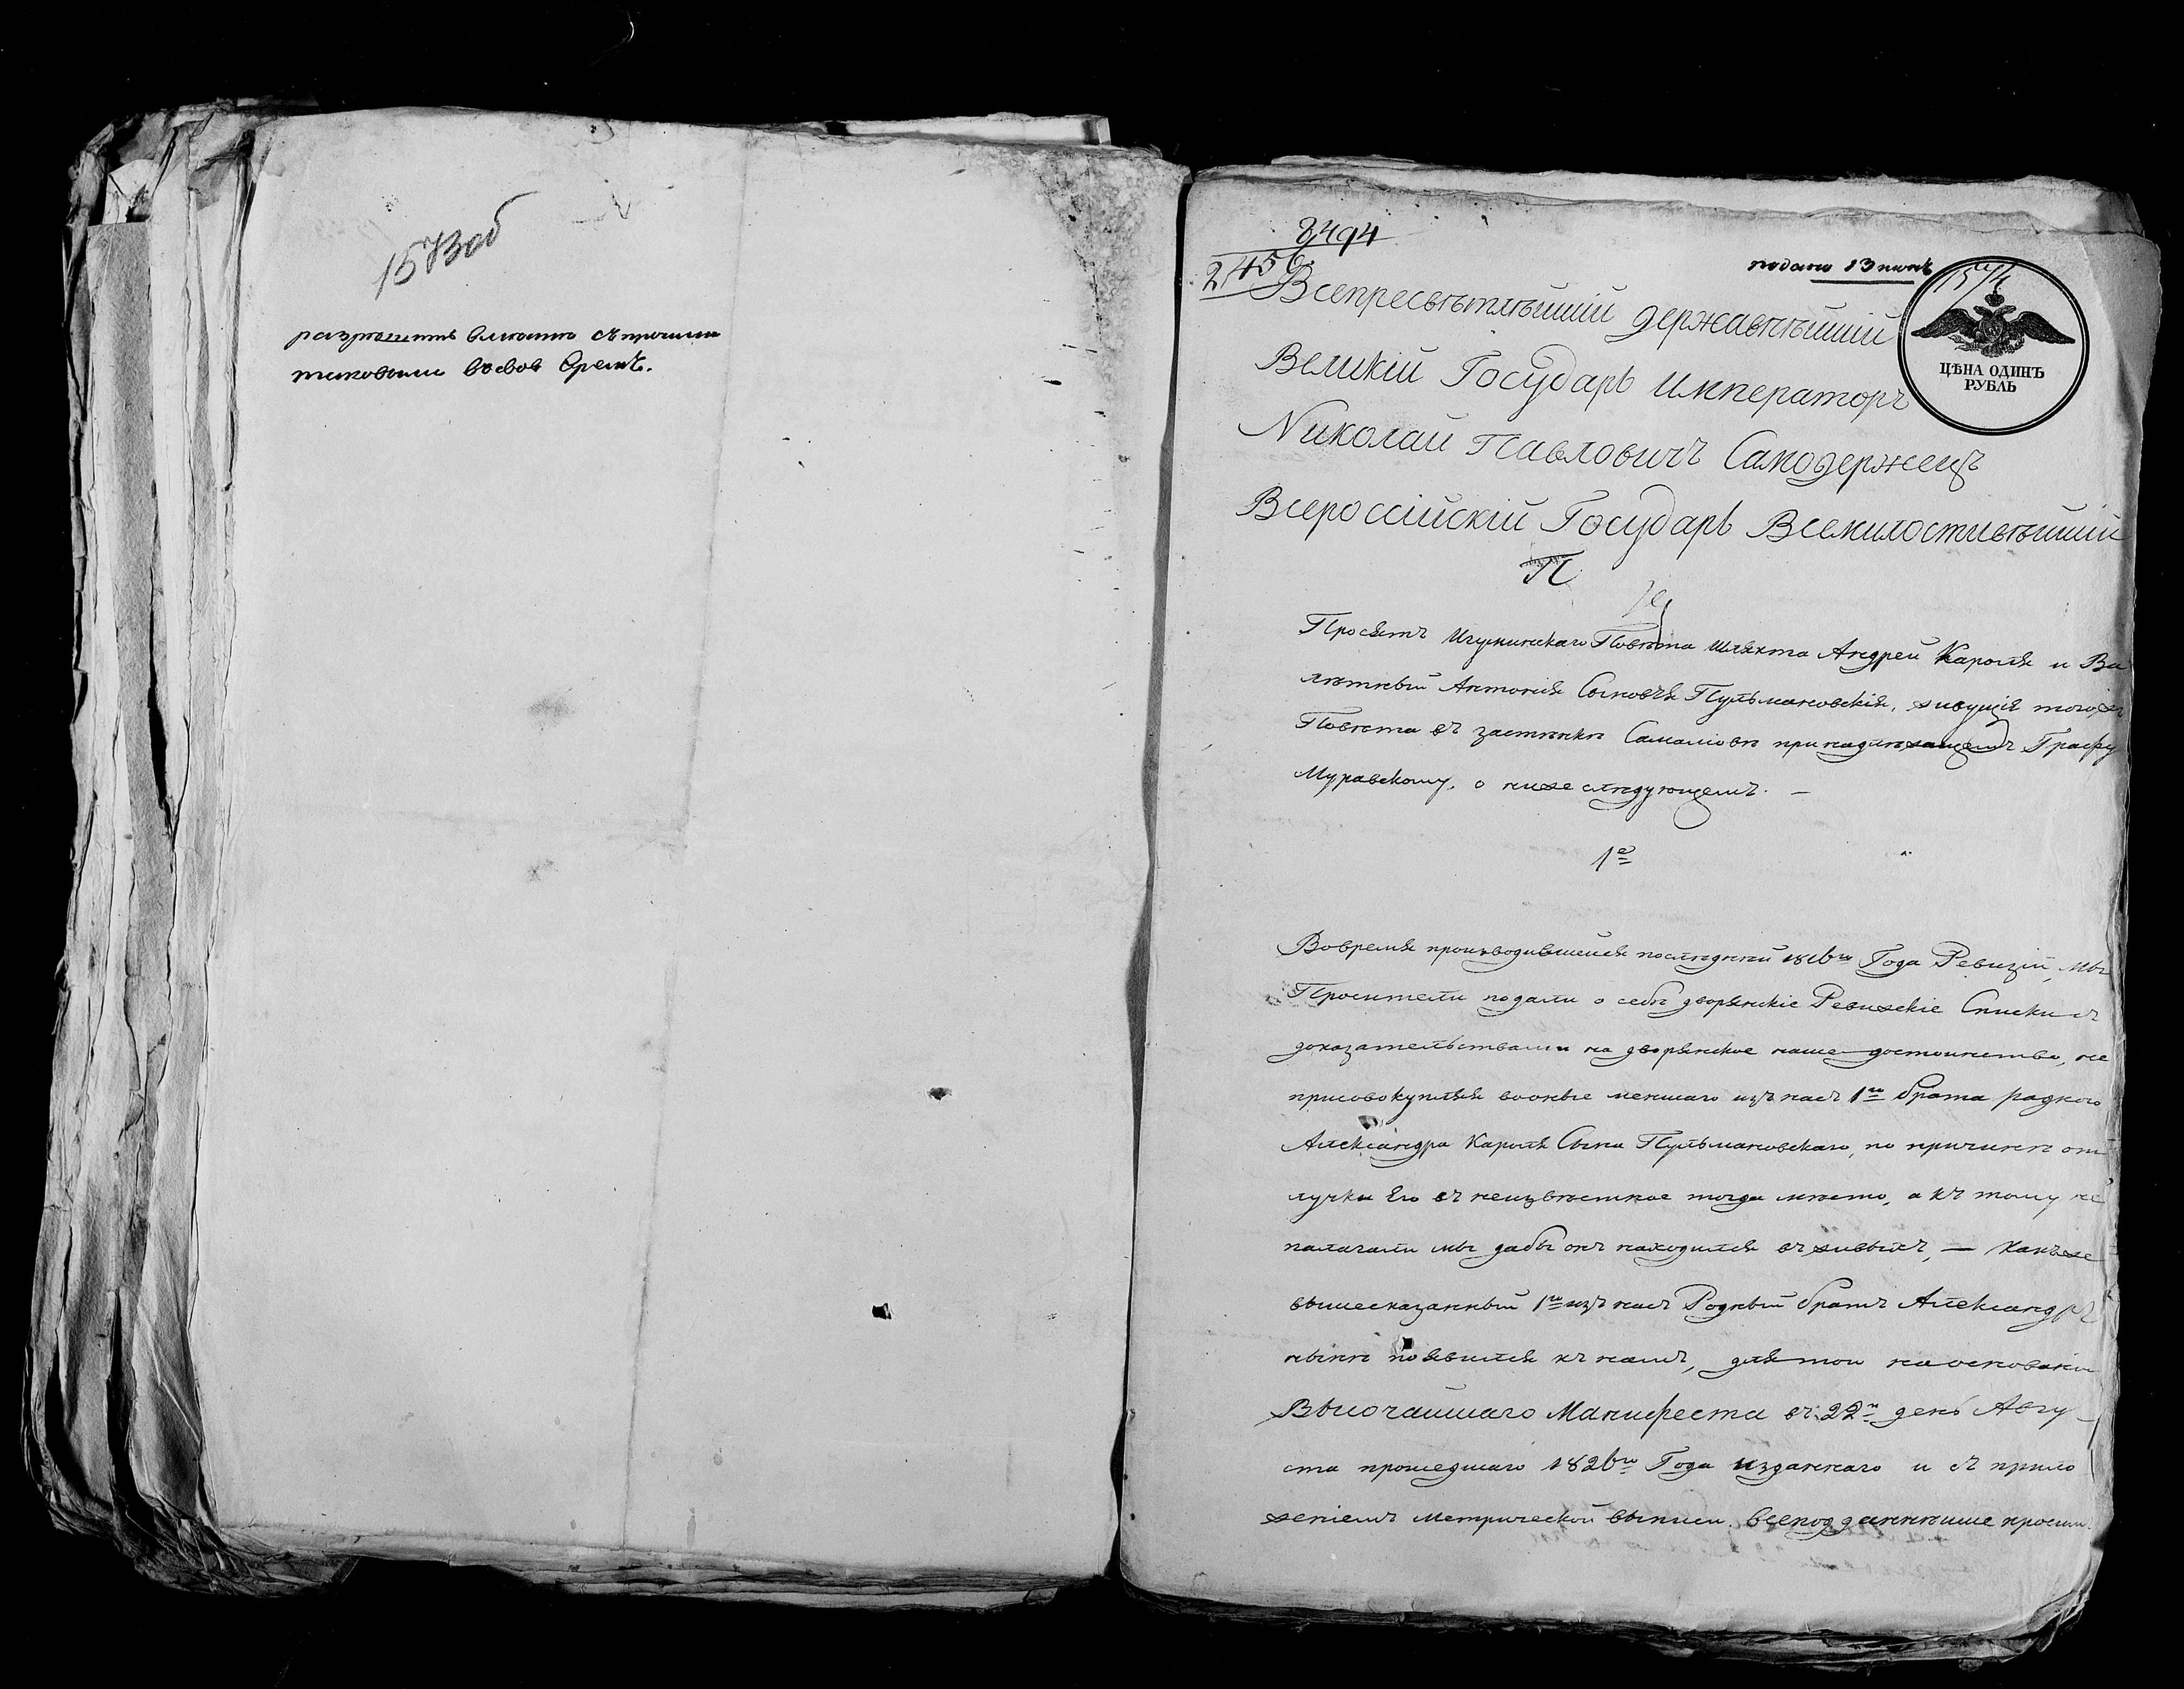 разрешить вместе съ прочими
таковыми въ свое время.
8494
2456.
подано 13 июнь
ЦѢНА ОДИНЪ
РУБЛЬ
Всепресвѣтлѣйшій державнѣйшій
Великій Государь Императоръ
Николай Павловичъ Самодержецъ
Всероссійскій Государь Всемилостивѣйшій
Просятъ Игуменскаго Повѣта шляхта Андрей Кароля и Ва
Антонія Сыновья Пульмановскія, живущія тогожъ
Повѣта въ застѣнкѣ принадлежащемъ Графу
Муравскому, о нижеслѣдующемъ. —
1е
Вовремя производившейся послѣдней 1816го Года Ревизій, мы
Просители подали о себѣ дворянскіе Ревижскіе Списки съ
доказательствами на дворянское наше достоинство, не
присовокупляя вооные меншаго изъ насъ 1го брата родного
Александра Кароля Сына Пульмановскаго, по причинѣ от
лучки Его въ неизвѣстное тогда мѣсто, а къ тому не
палагали мы дабы онъ находился въ живыхъ, — какъже
вышесказанный 1го изъ насъ Родный братъ Александръ
нынѣ появился къ намъ, для того на основаніи
Высочайшаго Манифеста въ 22й день Авгу
ста прошедшаго 1826го Года изданнаго и съ прило
женіемъ метрической выписи всеподданнѣйше просим